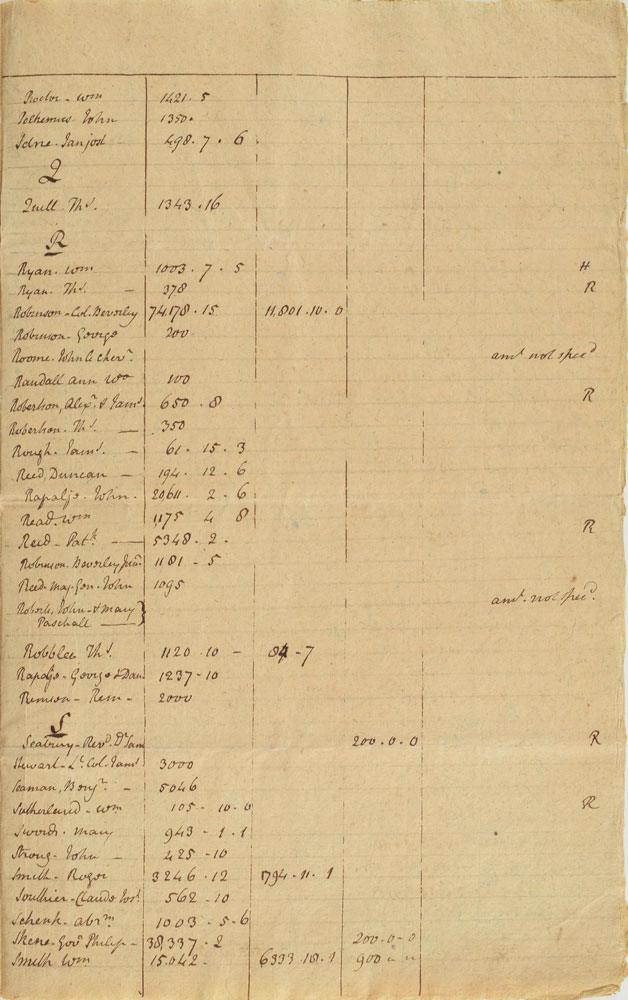 Proctor - Wm 1421 . 5
John 1350 .
498 . 7 . 6
Q
Quill Ths. 1343 . 16
R
Ryan - Wm 1003 . 7 . 5 H
Ryan - Ths. — 378 R
Robinson - Col. Beverley 74,178 . 15 11,801 . 10 . 0
Robinson - George 200
Roome - John Le Chevr. amt. not specd
Randall Ann Wo 100
Robertson, Alexr. & Jams. 650 . 8 R
Robertson - Ths. — 350
Rough - Jams. — 61 . 15 . 3
Reed, Duncan — 194 . 12 . 6
Rapalje - John - 20,611 . 2 . 6
Read - Wm 1175 4 8 R
Reid - Patk. — 5348 . 2 -
Robinson - Beverley Junr. 1181 - 5
Reed - Maj. Gen. John 1095
Roberts, John - & Mary } amt. not specd.
Paschall —
Robblee Ths. 1120 . 10 — 84 - 7
Rapalje - George & Dan 1237 - 10
Remsen - Rem - 2000
S
Seabury - Revd. Dr. Sam 200 . 0 . 0 R
Stewart - Lt. Col. Jams. 3000
Seaman, Benjn. — 5046
Sutherland - Wm 105 - 10 . 0 R
Swords - Mary 943 - 1 . 1
Strong - John — 425 - 10
Smith - Roger 3246 . 12 1794 . 11 . 1
Southier - Claude Jos. 562 - 10
Schenk - Abrm 1003 - 5 - 6
Skene - Govr Philip - 38,337 . 2 200 - 0 - 0
Smith Wm 15,042 - 6333 . 18 . 1 900 " "